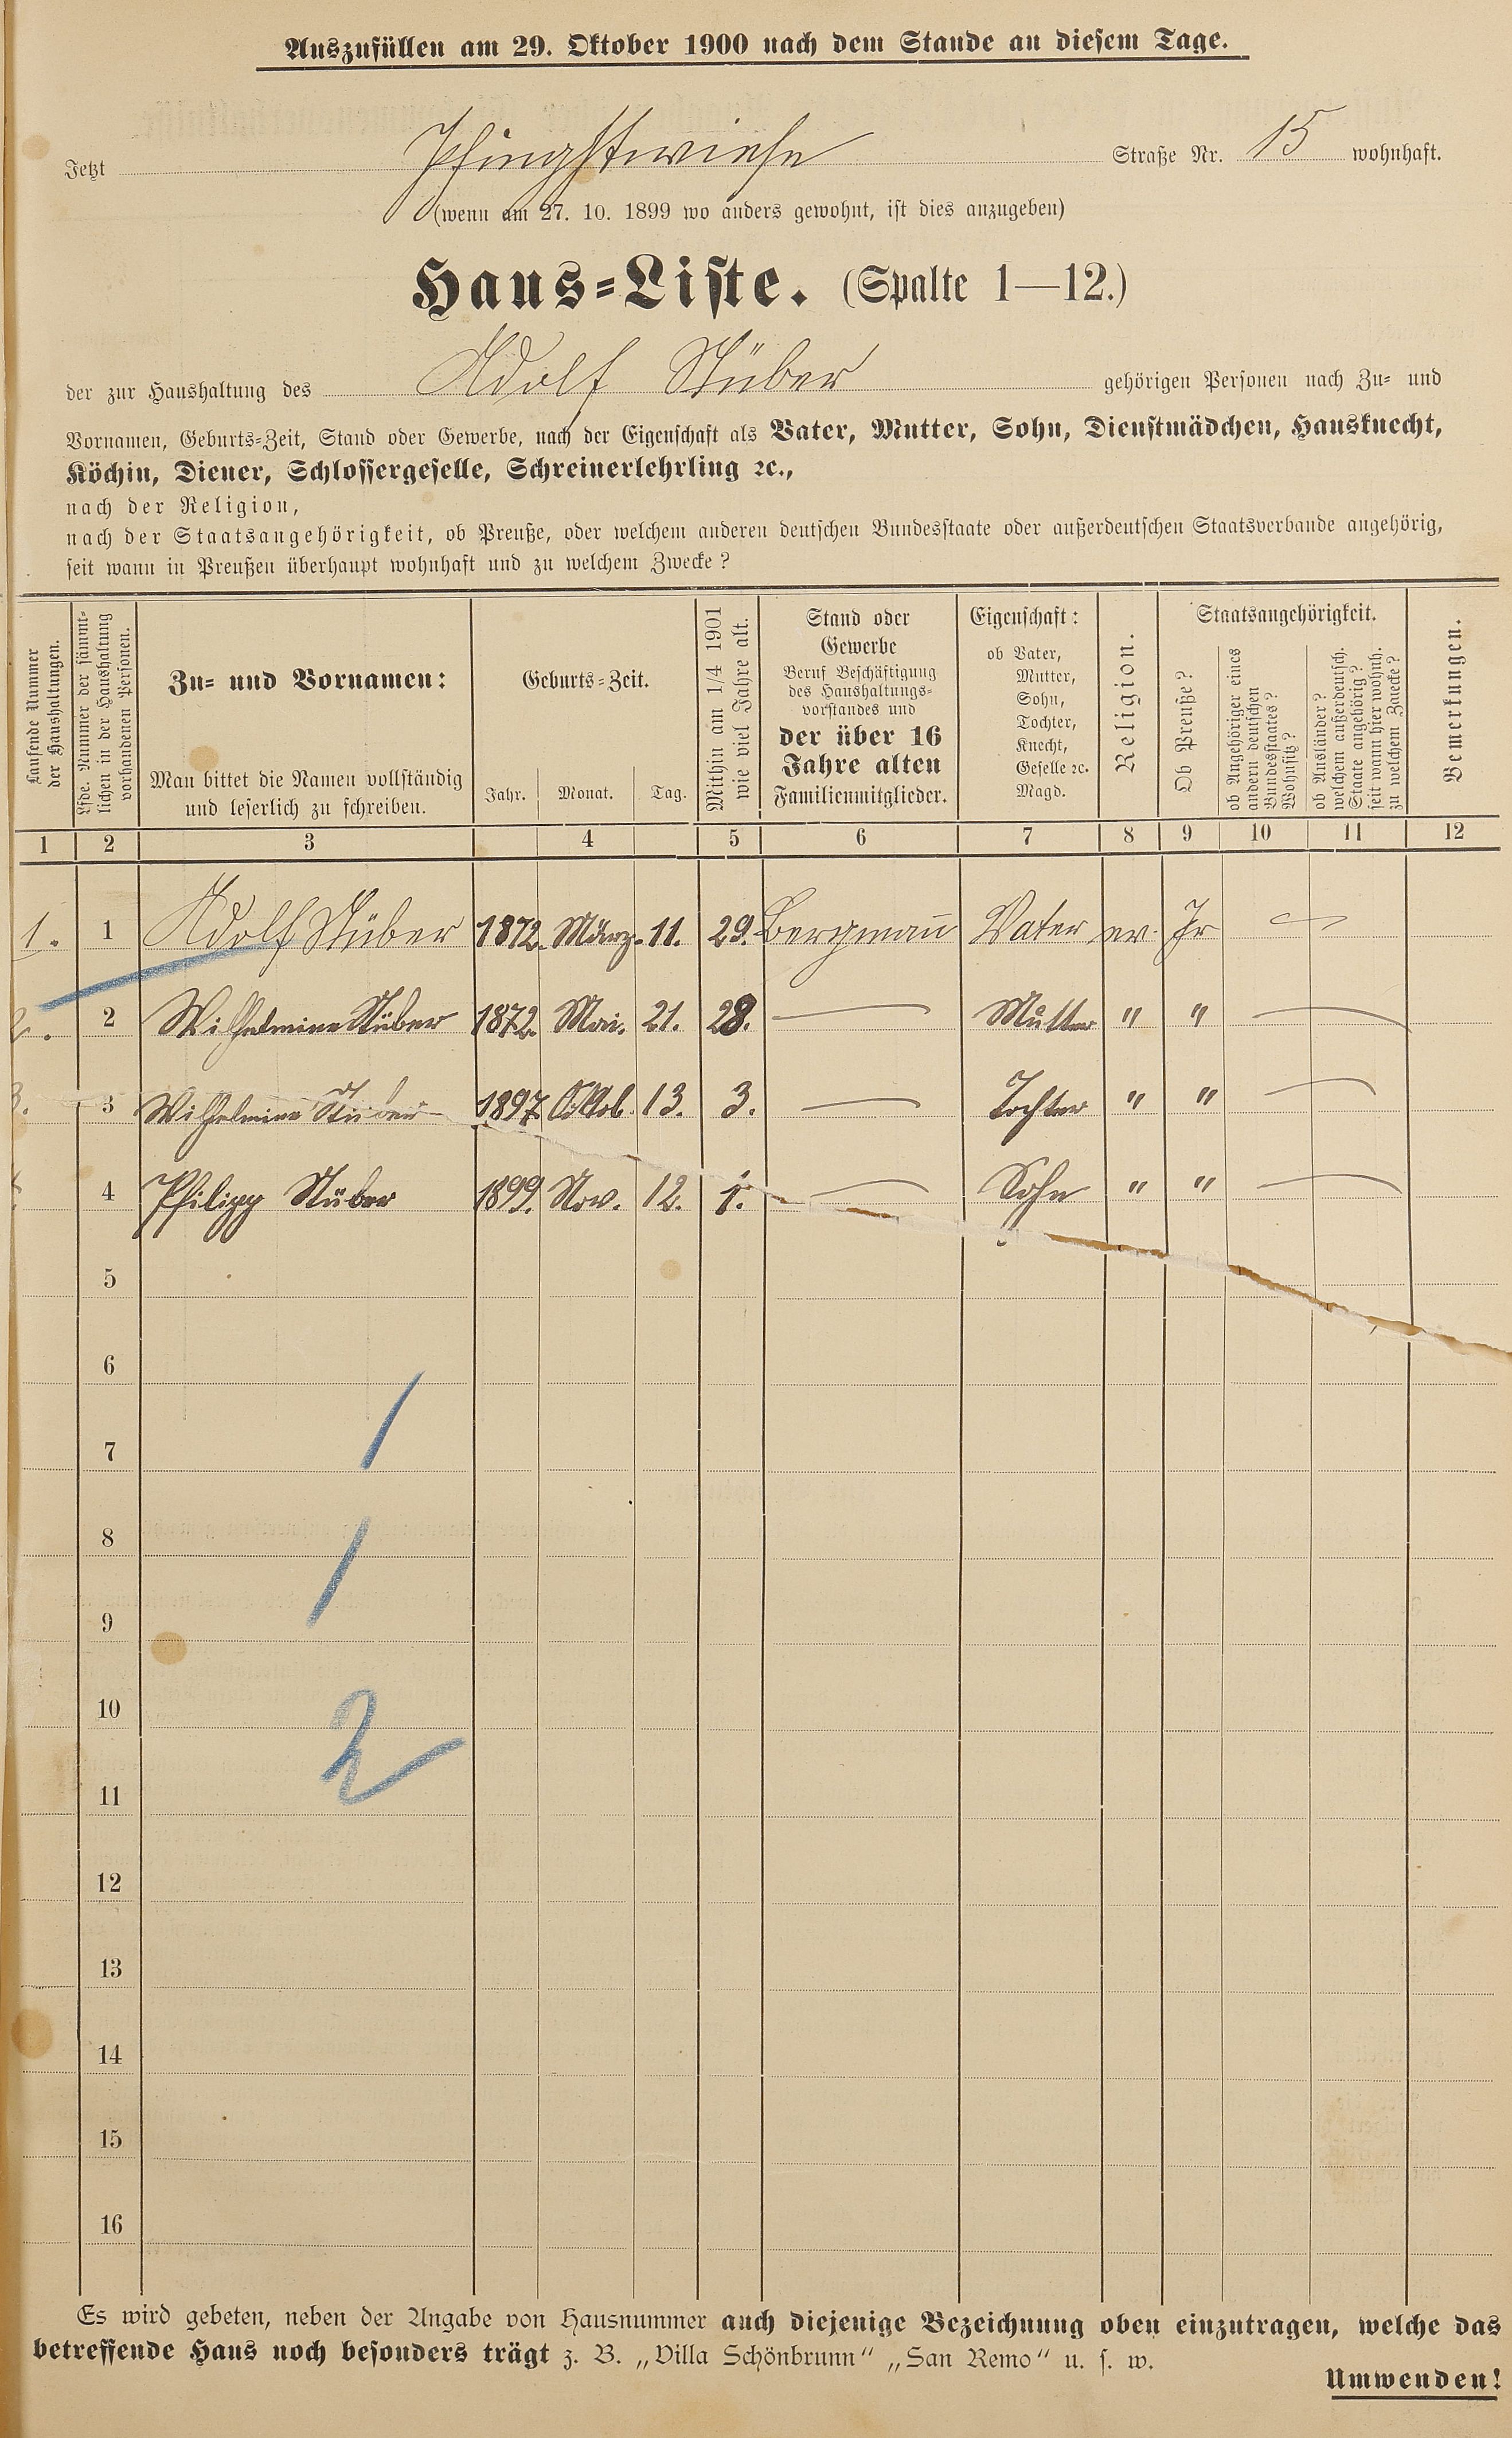 Auszufüllen am 29. Oktober 1900 nach dem Stande an diesem Tage.
Jetzt Pfingstwiese Straße Nr. 15 wohnhaft.
(wenn am 27. 10. 1899 wo anders gewohnt, ist dies anzugeben)
Haus-Liste. (Spalte 1—12.)
der zur Haushaltung des Adolf Stüber gehörigen Personen nach Zu- und
Vornamen, Geburts-Zeit, Stand oder Gewerbe, nach der Eigenschaft als Vater, Mutter, Sohn, Dienstmädchen, Hausknecht,
Köchin, Diener, Schlossergeselle, Schreinerlehrling ꝛc.,
nach der Religion,
nach der Staatsangehörigkeit, ob Preuße, oder welchem anderen deutschen Bundesstaate oder außerdeutschen Staatsverbande angehörig,
seit wann in Preußen überhaupt wohnhaft und zu welchem Zwecke?
Laufende Nummer
der Haushaltungen.
Lfde. Nummer der sämmt-
lichen in der Haushaltung
vorhandenen Personen.
Zu- und Vornamen:
Man bittet die Namen vollständig
und leserlich zu schreiben.
Geburts-Zeit.
Jahr. Monat. Tag.
Mithin am 1/4 1901
wie viel Jahre alt.
Stand oder
Gewerbe
Beruf Beschäftigung
des Haushaltungs-
vorstandes und
der über 16
Jahre alten
Familienmitglieder.
Eigenschaft:
ob Vater,
Mutter,
Sohn,
Tochter,
Knecht,
Geselle ꝛc.
Magd.
Religion.
Staatsangehörigkeit.
Ob Preuße?
ob Angehöriger eines
andern deutschen
Bundesstaates?
Wohnsitz?
ob Ausländer?
welchem außerdeutsch.
Staate angehörig?
seit wann hier wohnh.
zu welchem Zwecke?
Bemerkungen.
1 2 3 4 5 6 7 8 9 10 11 12
1. 1 Adolf Stüber 1872. März. 11. 29. Bergmann Vater ev. Jr —
2. 2 Wilhelmine Stüber 1872. Mai. 21. 28. — Mutter " " —
3. 3 Wilhelmine Stüber 1897. Oktob. 13. 3. — Tochter " " —
4 Philipp Stüber 1899. Nov. 12. 1. — Sohn " " —
5
6
7
1
8
1
9
10
2
11
12
13
14
15
16
Es wird gebeten, neben der Angabe von Hausnummer auch diejenige Bezeichnung oben einzutragen, welche das
betreffende Haus noch besonders trägt z. B. „Villa Schönbrunn“ „San Remo“ u. s. w.
Umwenden!